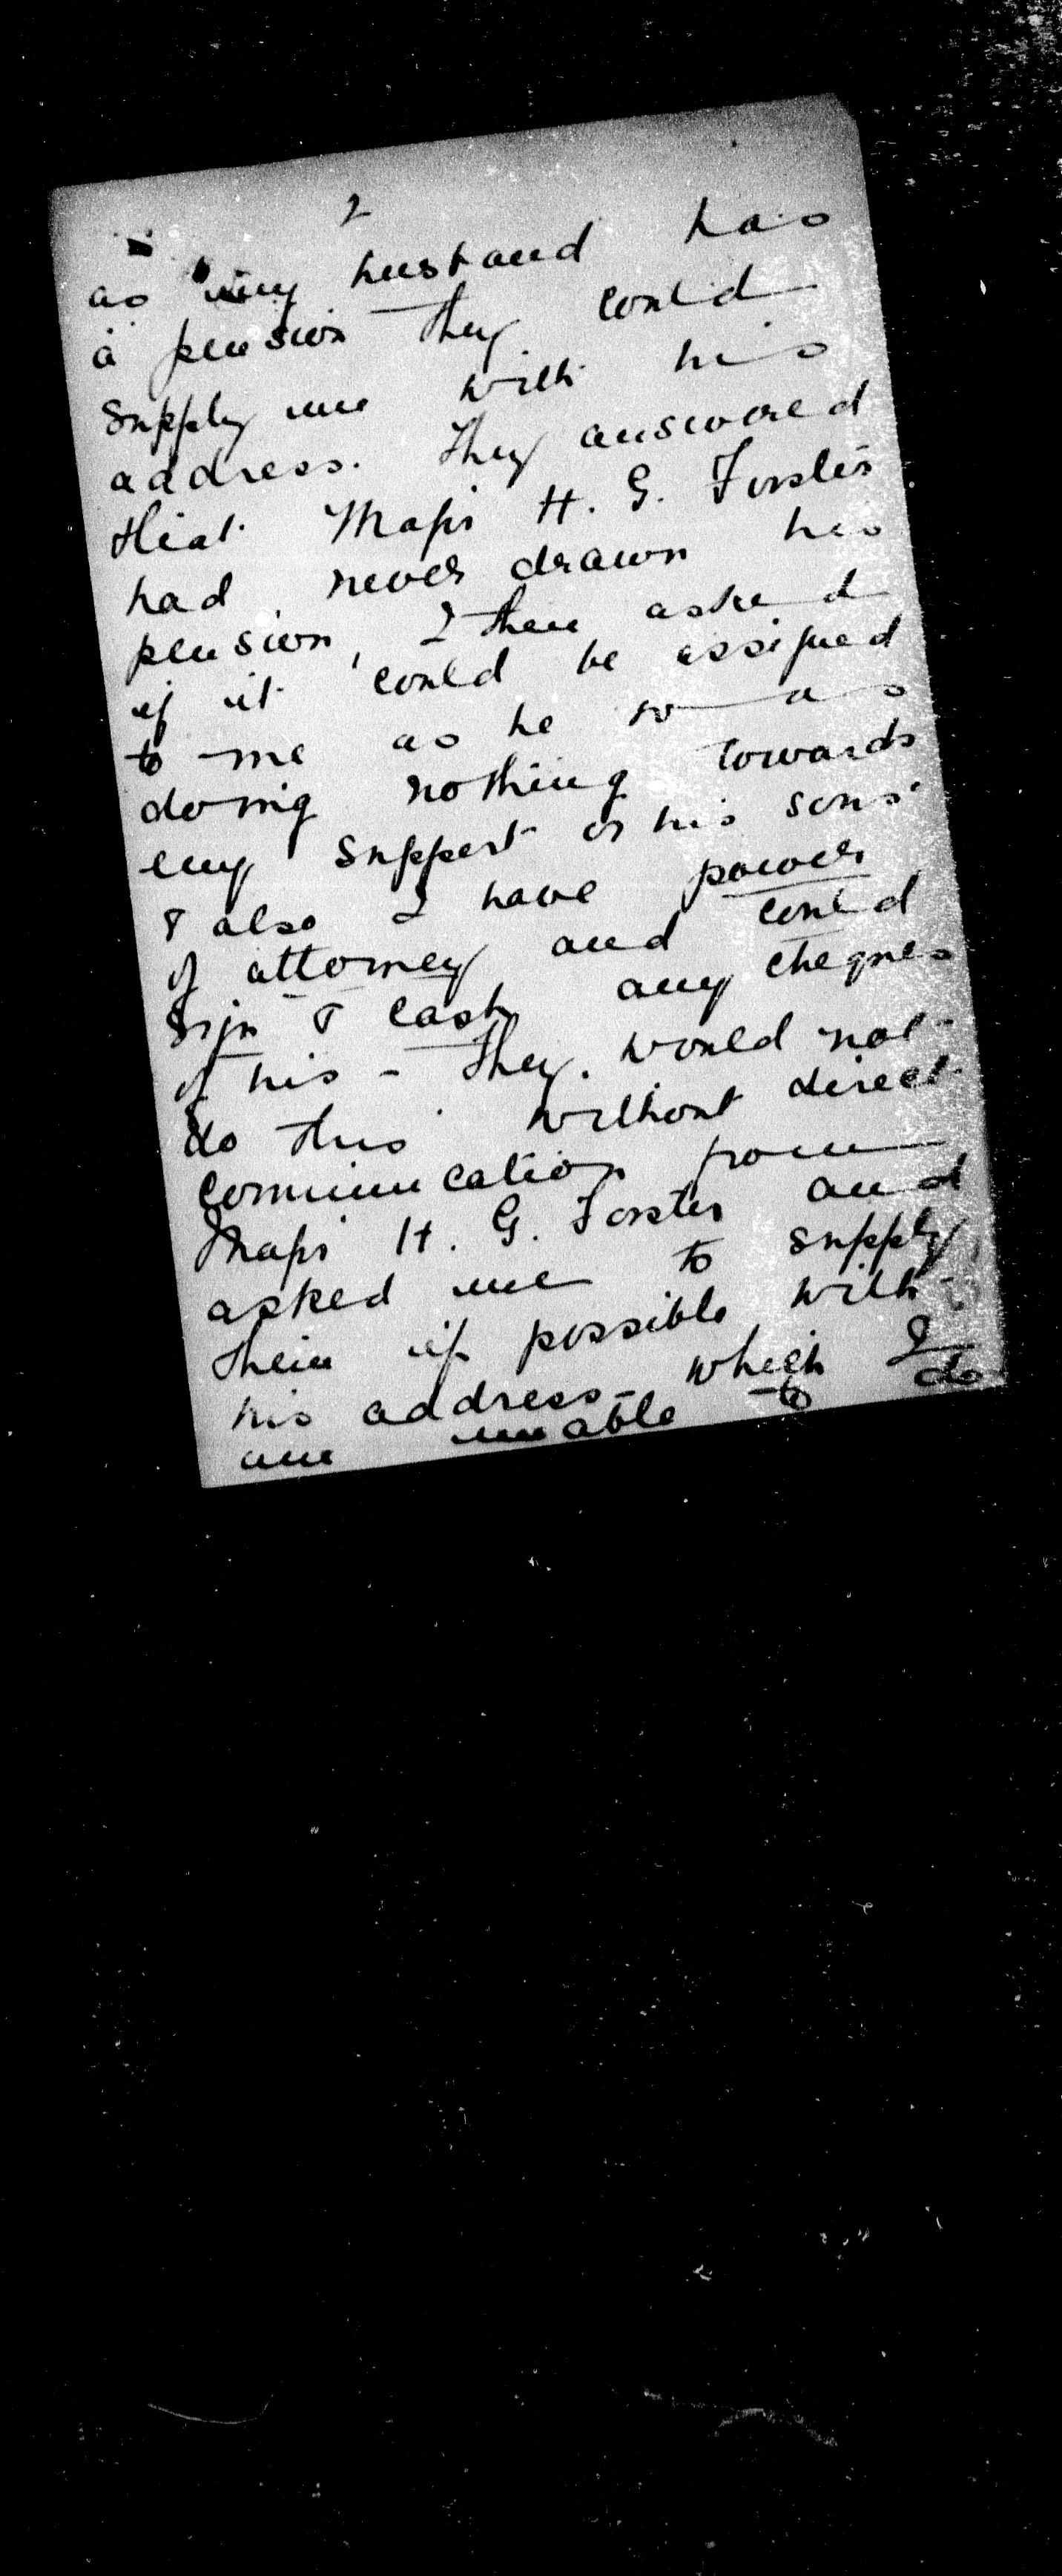 2
as my husband has
a pension they could
supply me with his
address. They answered
that Major H. G. Forster
had never drawn his
pension, I then asked
if it could be assigned
to me as he was
doing nothing towards
my support or his sons'
& also I have power
of attorney and could
sign & cash any cheques
of his - They would not
do this without direct
communication from
Major H. G. Forster and
asked me to supply
them if possible with
his address - which I
am unable to do